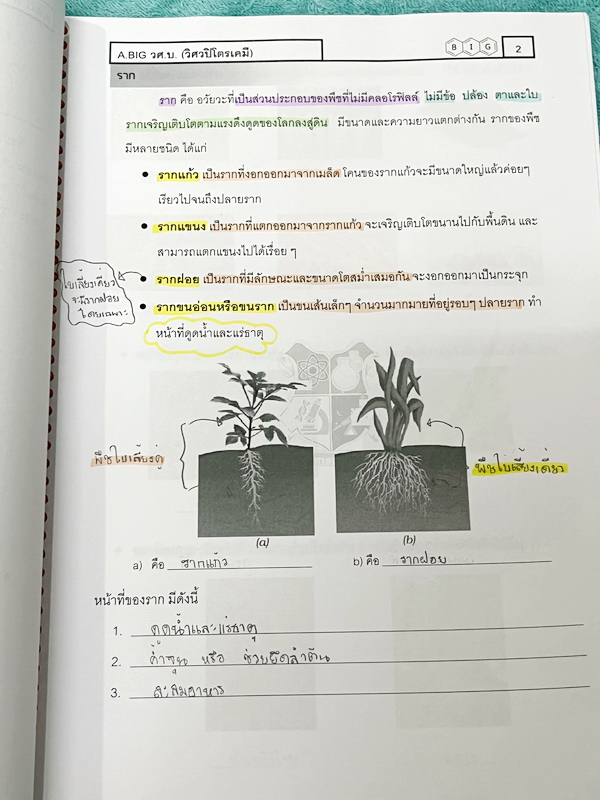 A.BIG วศ.บ. (วิศวปิโตรเคมี)
B I G
2
ราก
ราก คือ อวัยวะที่เป็นส่วนประกอบของพืชที่ไม่มีคลอโรฟิลล์ ไม่มีข้อ ปล้อง ตาและใบ
รากเจริญเติบโตตามแรงดึงดูดของโลกลงสู่ดิน มีขนาดและความยาวแตกต่างกัน รากของพืช
มีหลายชนิด ได้แก่
• รากแก้ว เป็นรากที่งอกออกมาจากเมล็ด โคนของรากแก้วจะมีขนาดใหญ่แล้วค่อยๆ
เรียวไปจนถึงปลายราก
• รากแขนง เป็นรากที่แตกออกมาจากรากแก้ว จะเจริญเติบโตขนานไปกับพื้นดิน และ
สามารถแตกแขนงไปได้เรื่อย ๆ
• รากฝอย เป็นรากที่มีลักษณะและขนาดโตสม่ำเสมอกัน จะงอกออกมาเป็นกระจุก
• รากขนอ่อนหรือขนราก เป็นขนเส้นเล็กๆ จำนวนมากมายที่อยู่รอบๆ ปลายราก ทำ
หน้าที่ดูดน้ำและแร่ธาตุ
ใบเลี้ยงเดี่ยว
จะมีรากฝอย
โดยเฉพาะ
พืชใบเลี้ยงคู่
พืชใบเลี้ยงเดี่ยว
(a)
(b)
a) คือ รากแก้ว
b) คือ รากฝอย
หน้าที่ของราก มีดังนี้
1. ดูดน้ำและแร่ธาตุ
2. ค้ำจุน หรือ ช่วยยึดลำต้น
3. สะสมอาหาร